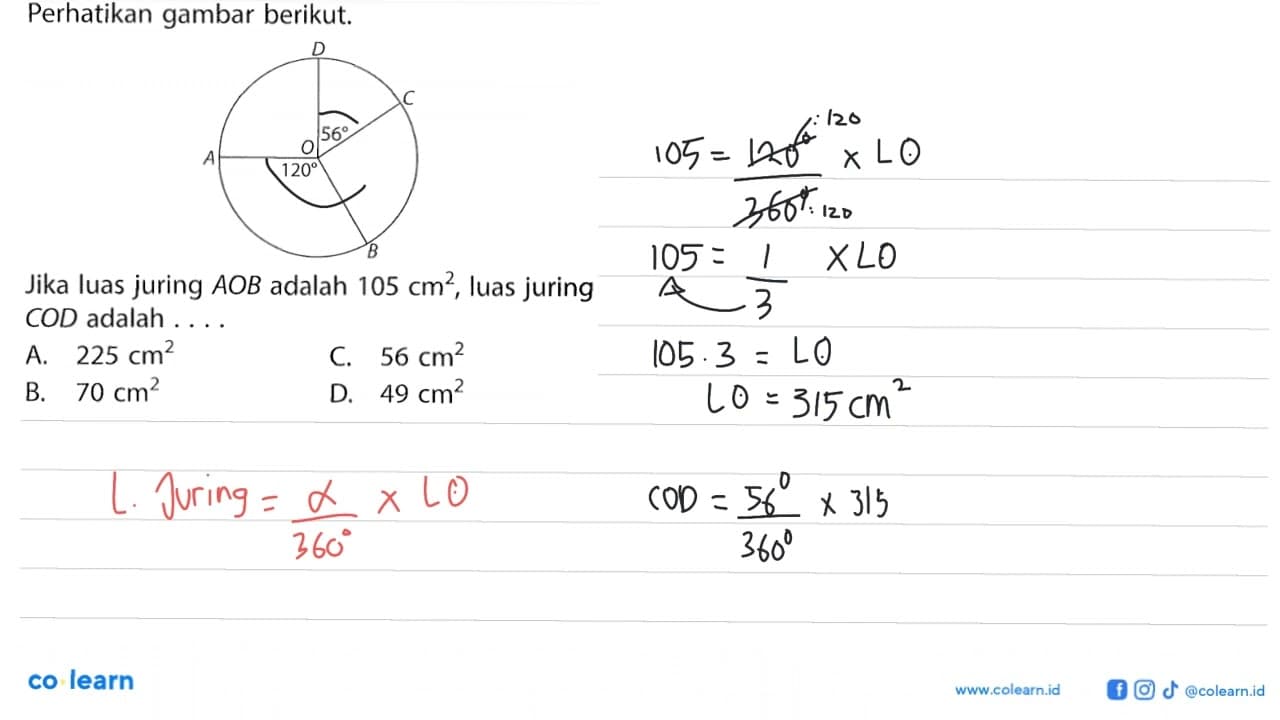 Perhatikan gambar berikut.
D
C
56°
O
A
120°
B
Jika luas juring AOB adalah 105 cm², luas juring
COD adalah . . . .
A. 225 cm² C. 56 cm²
B. 70 cm² D. 49 cm²
L. Juring = α/360° × LO
105 = 120°/360° × LO
: 120
: 120
105 = 1/3 × LO
105 . 3 = LO
LO = 315 cm²
COD = 56°/360° × 315
co learn
www.colearn.id @colearn.id